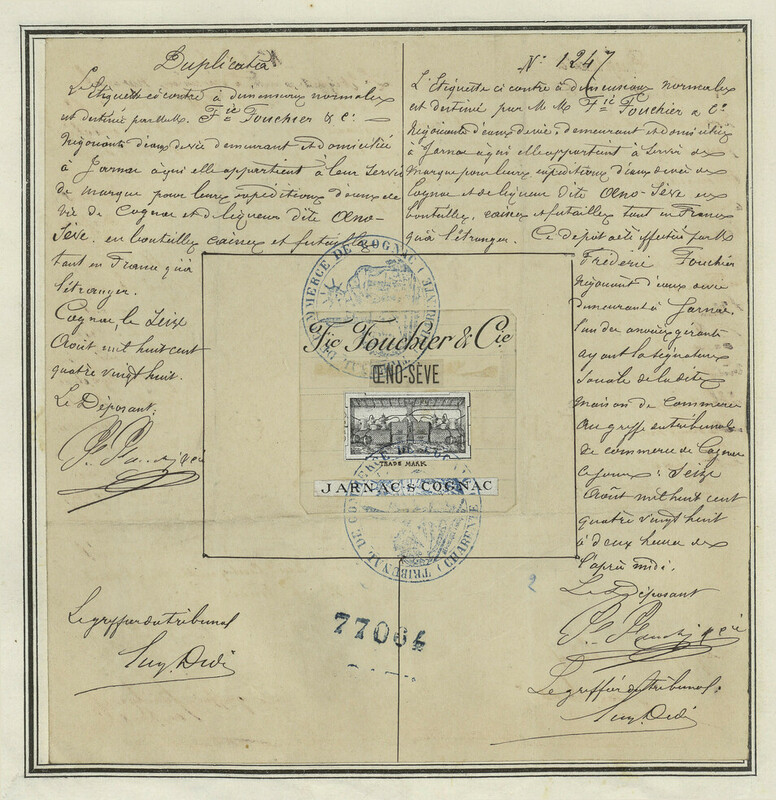 Duplicata
L'Etiquette ci contre à dimensions normales
est destiné par M.M. Fic Fouchier & Cie
Négociants d'eaux de vie demeurant et domiciliés
à Jarnac à qui elle appartient à leur servir
de marque pour leurs expéditions d'eaux de
vie de Cognac et de liqueur dite Œno-
Sève, en bouteilles, caisses et futailles
tant en France qu'à
l'étranger.
Cognac, le Seize
Août mil huit cent
quatre vingt huit.
Le Déposant:
Le greffier du tribunal
No 1247
L'Etiquette ci contre à dimensions normales
est destiné par M M. Fic Fouchier & Cie
Négociants d'eaux de vie, demeurant et domiciliés
à Jarnac à qui elle appartient à servir de
marque pour leurs expéditions d'eaux de vie de
Cognac et de liqueur dite Œno-Sève en
bouteilles, caisses et futailles tant en France
qu'à l'étranger. Ce dépôt a été effectué par M
Fréderic Fouchier
Négociant d'eaux de vie
demeurant à Jarnac,
l'un des associés gérants
ayant la signature
sociale de la dite
maison de commerce
au greffe du tribunal
de commerce de Cognac
ce jour: Seize
Août mil huit cent
quatre vingt huit
à deux heures de
l'après midi.
Le Déposant
Le greffier du tribunal:
Fic Fouchier & Cie
ŒNO-SÈVE
TRADE MARK
JARNAC s COGNAC
TRIBUNAL DE COMMERCE DE COGNAC (CHARENTE)
TRIBUNAL DE COMMERCE DE COGNAC (CHARENTE)
77064
2